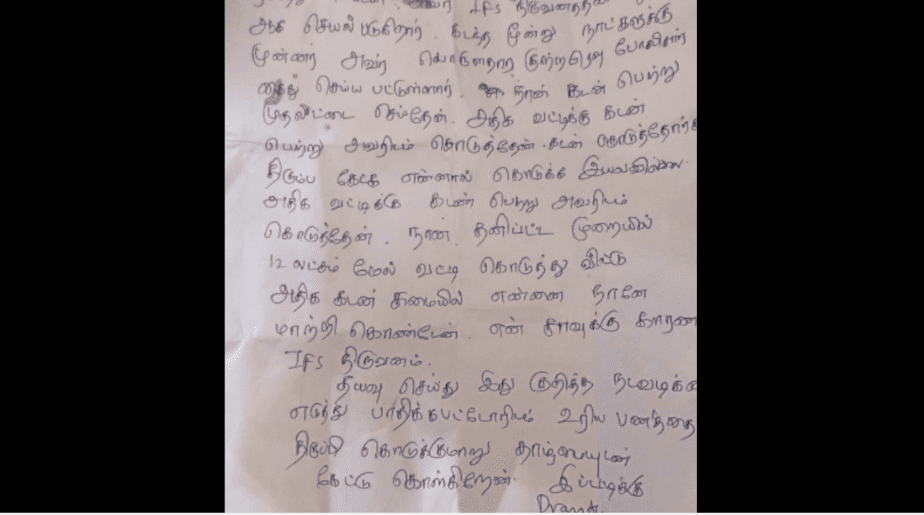 IFS நிருவனத்தின்
ஆக செயல் படுகிறார். கடந்த மூன்று நாட்களுக்கு
முன்னர் அவர் பொருளாதார குற்றபிரிவு போலிசார்
கைது செய்ய பட்டுள்ளார். நான் கடன் பெற்று
முதலீட்டை செய்தேன். அதிக வட்டிக்கு கடன்
பெற்று அவரியம் கொடுத்தேன். கடன் கொடுத்தோர்கள்
திரும்ப கேட்க என்னால் கொடுக்க இயலவில்லை.
அதிக வட்டிக்கு கடண் பெற்று அவரியம்
கொடுத்தேன். நான் தனிப்பட்ட முறையில்
12 லட்சம் மேல் வட்டி கொடுத்து விட்டு
அதிக கடன் சுமையில் என்னை நானே
மாற்றி கொண்டேன். என் சாவுக்கு காரண
IFS நிருவனம்.
தயவு செய்து இது குறித்த நடவடிக்கை
எடுத்து பாதிக்கபட்டோரியம் உரிய பணத்தை
திருப்பி கொடுக்குமாறு தாழ்மையுடன்
கேட்டு கொள்கிறேன். இப்படிக்கு